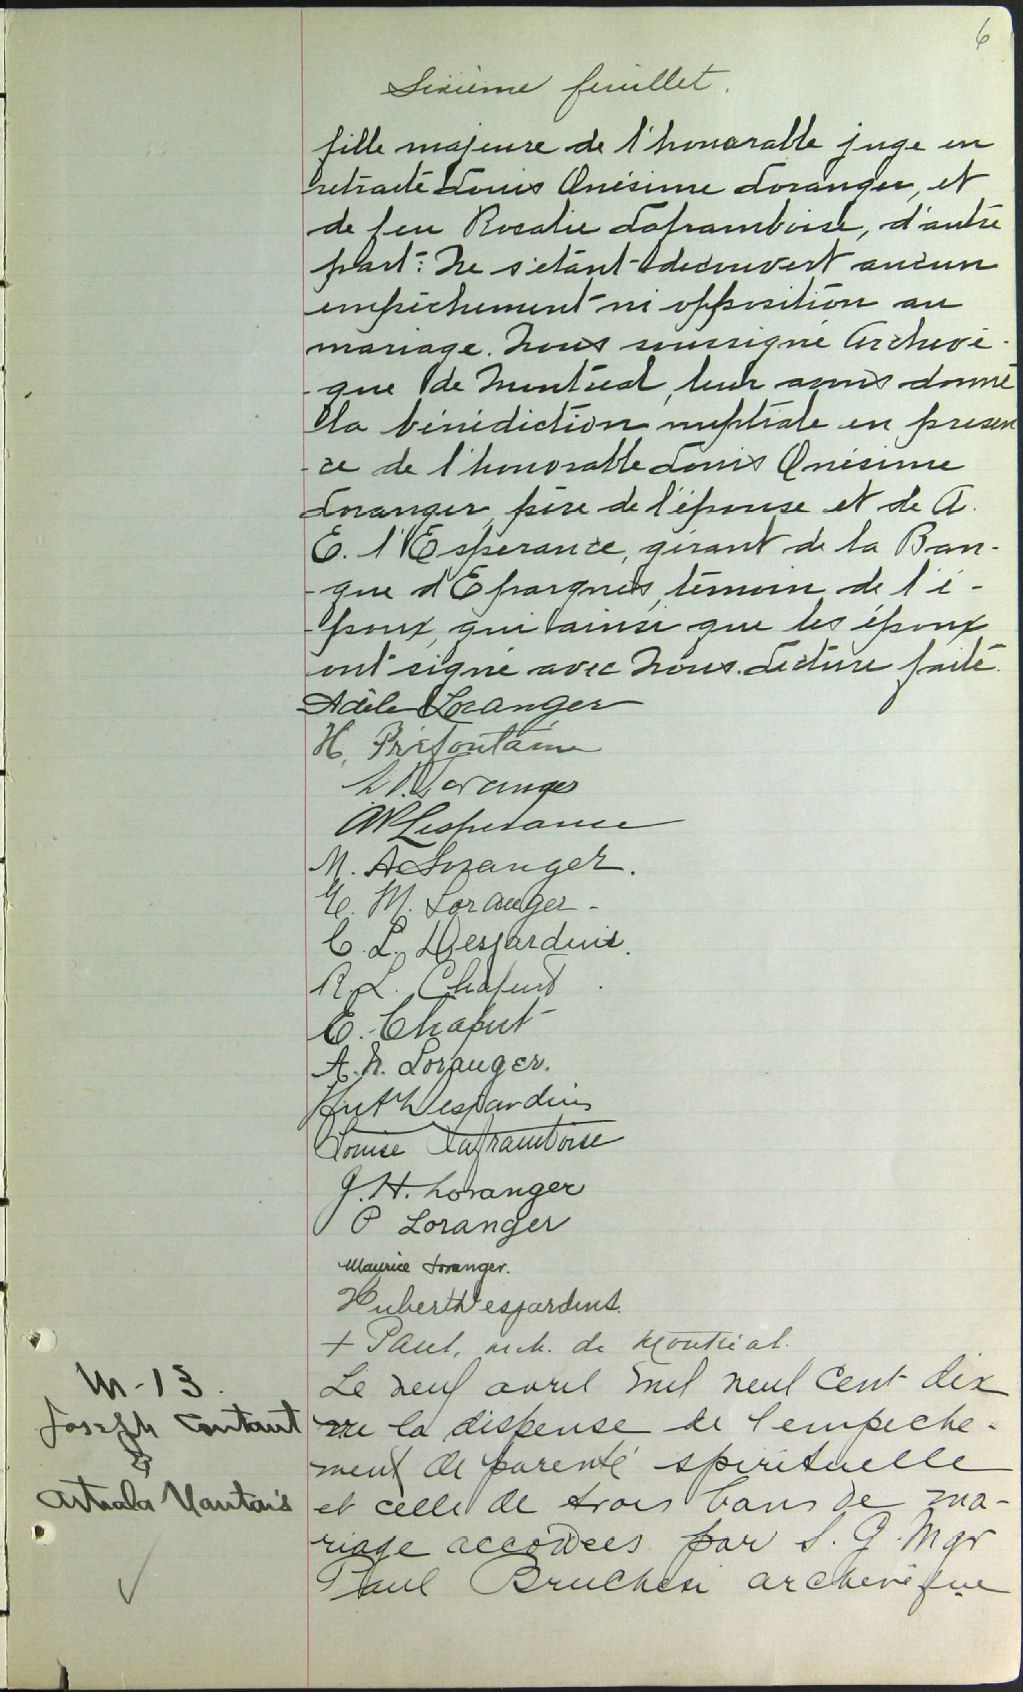 6
Sixième feuillet.
fille majeure de l'honorable juge en
retraite Louis Onésime Loranger, et
de feu Rosalie Laframboise, d'autre
part: Ne s'étant découvert aucun
empêchement ni opposition au
mariage. Nous soussigné Archevê-
-que de Montréal, leur avons donné
la bénédiction nuptiale en présen
-ce de l'honorable Louis Onésime
Loranger, père de l'épouse et de A.
E. l'Espérance, gérant de la Ban-
-que d'Epargnes, témoin de l'é-
-poux, qui ainsi que les époux
ont signé avec Nous. Lecture faite.
Adèle Loranger
H. Préfontaine
Loranger
Lesperance
M. A Loranger.
M. Loranger -
C. L. Desjardins.
R. L. Chaput
E. Chaput
A. N. Loranger.
Desjardins
Louise Laframboise
J. H. Loranger
P Loranger
Maurice Loranger.
Hubert Desjardins.
+ Paul, arch. de Montréal.
M-13.
Joseph Contant
&
Nantais
Le neuf avril mil neuf cent dix
vu la dispense de l'empeche-
ment de parenté spirituelle
et celle de trois bans de ma-
riage accordées par S. G. Mgr
Paul Bruchesi archevêque